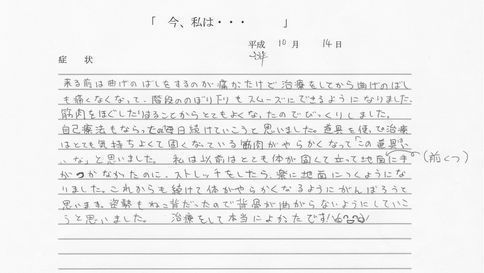 「 今、私は・・・ 」
平成 10月 14日
症 状
来る前は曲げのばしをするのが痛かたけど治療をしてから曲げのばし
も痛くなくなって、階段ののぼり下りもスムーズにできるようになりました。
筋肉をほぐしたりはることからともよくなったのでびっくりしました。
自己療法もならったので毎日続けていこうと思いました。道具を使った治療
はとても気持ちよくて固くなっている筋肉がやらかくなって「この道具
いな」と思いました。 私は以前はとても体が固くて立って地面に手 (前くつ)
がつかなかたのに、ストレッチをしたら、楽に地面につくようにな
りました。これからも続けて体がやらかくなるようにがんばろうて
思います。姿勢もねこ背だったので背骨が曲がらないようにしていこ
うと思いました。 治療をして本当によかたです!